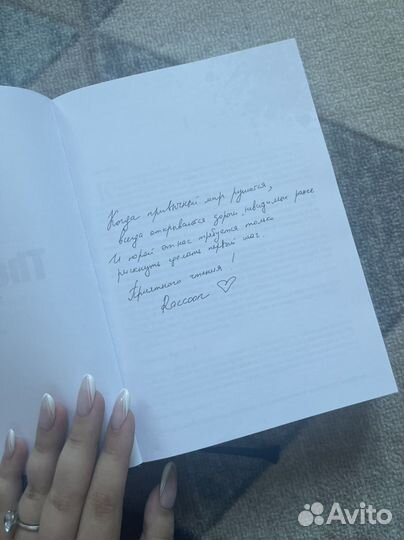 The
Когда привычный мир рушится,
всегда открываются дороги, невидимые ранее
И порой от нас требуется только
рискнуть сделать первый шаг.
Приятного чтения!
Raccoon
Avito